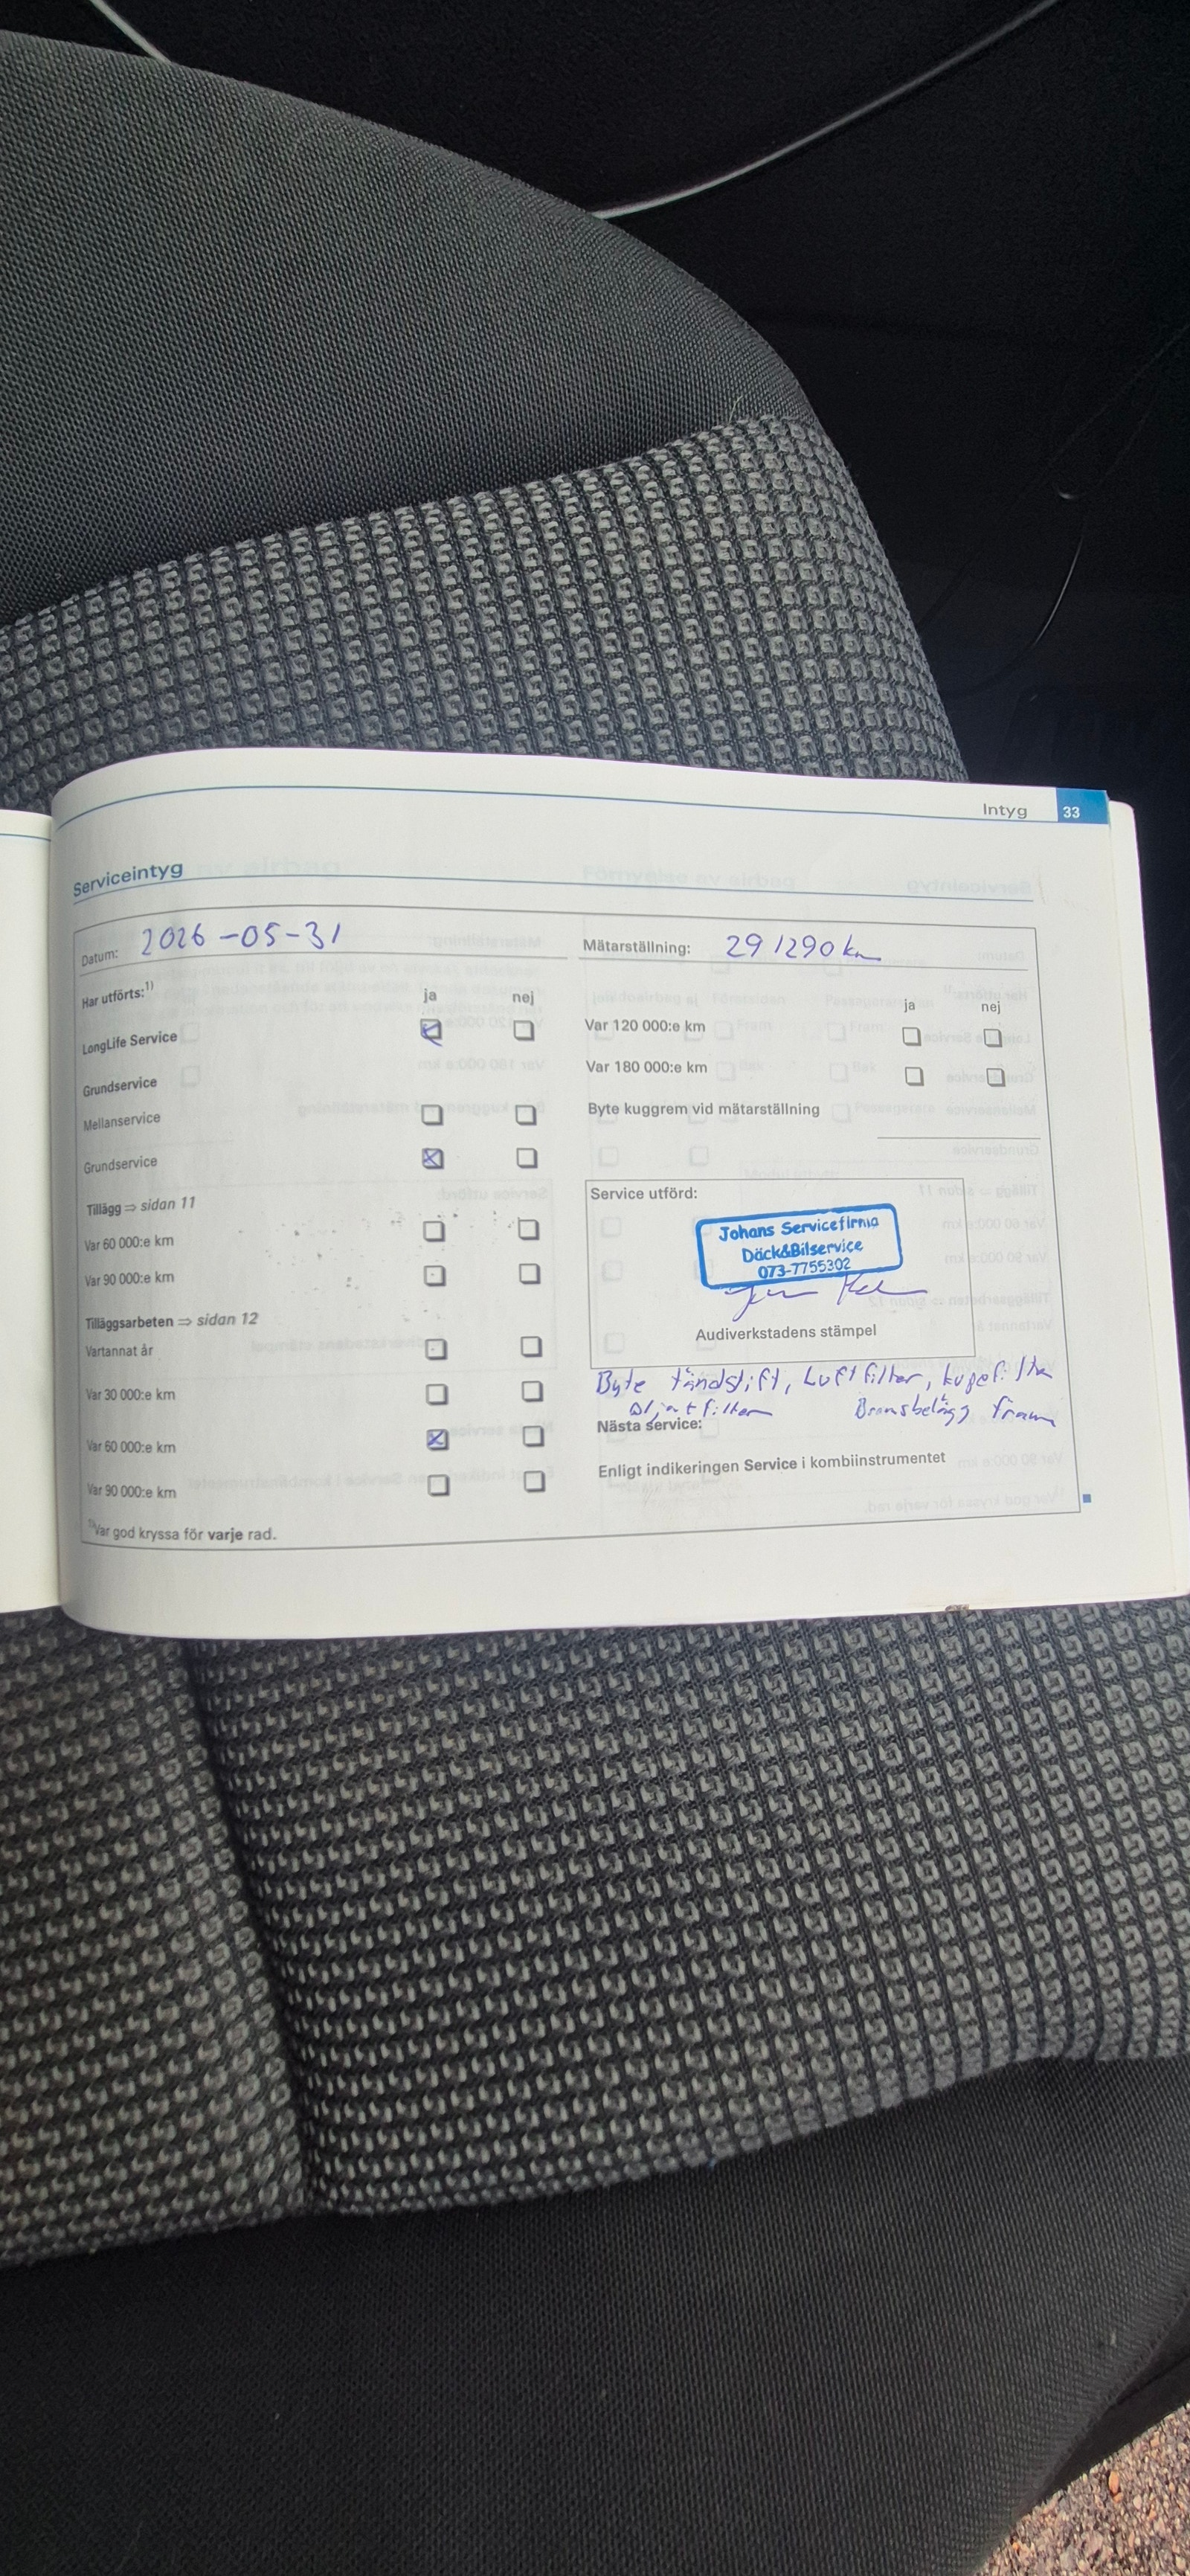 Intyg 33
Serviceintyg
Datum: 2026-05-31
Har utförts:1)
ja nej
LongLife Service
Grundservice
Mellanservice
Grundservice
Tillägg ⇒ sidan 11
Var 60 000:e km
Var 90 000:e km
Tilläggsarbeten ⇒ sidan 12
Vartannat år
Var 30 000:e km
Var 60 000:e km
Var 90 000:e km
1)Var god kryssa för varje rad.
Mätarställning: 291290 km
ja nej
Var 120 000:e km
Var 180 000:e km
Byte kuggrem vid mätarställning
Service utförd:
Johans Servicefirma
Däck&Bilservice
073-7755302
Audiverkstadens stämpel
Byte tändstift, Luftfilter, kupefilter
Oljefilter Bromsbelägg fram
Nästa service:
Enligt indikeringen Service i kombiinstrumentet